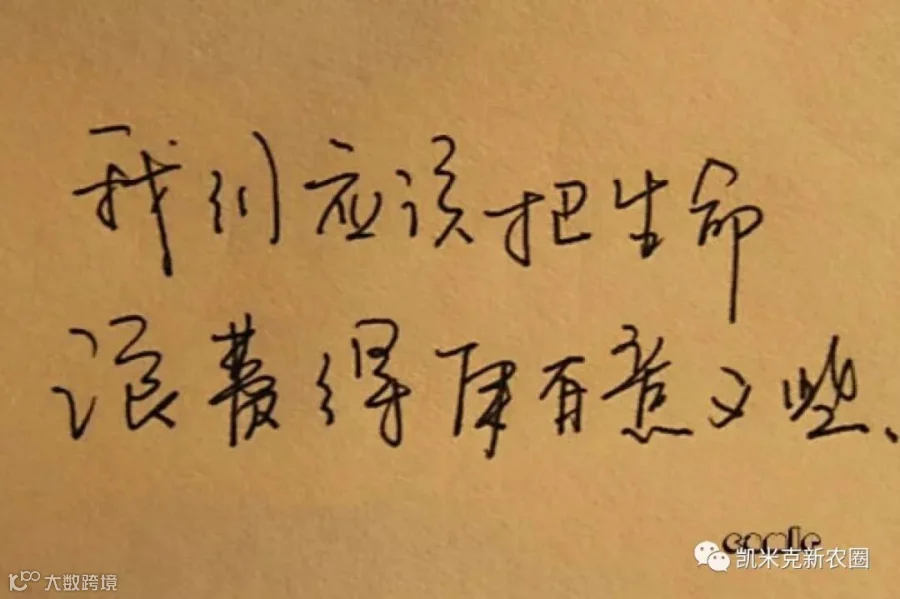 我们应该把生命
浪费得更有意义些、
凯米克新农圈
大数跨境